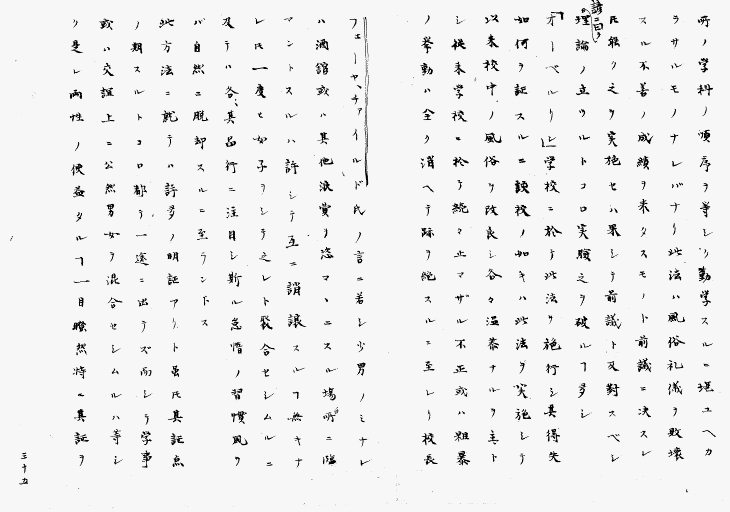 所ノ学科ノ順序ヲ等シク勤学スルニ堪ユヘカ
ラサルモノナレバナリ此法ハ風俗礼儀ヲ敗壊
スル不善ノ成績ヲ来タスモノト前議ニ決スレ
ド能ク之ヲ実施セハ果シテ前議ト反対スベシ
諺ニ曰ク
理論ノ立ツルトコロ実験之ヲ破ルヿ多シ
「オーベルリン」学校ニ於テ此法ヲ施行シ其得失
如何ヲ証スルニ該校ノ如キハ此法ヲ実施シテ
以来校中ノ風俗ヲ改良シ各々温恭ナルヲ主ト
シ従来学校ニ於テ続々止マザル不正或ハ粗暴
ノ挙動ハ全ク消ヘテ跡ヲ絶スルニ至レリ校長
フェーヤ、チァイルド氏ノ言ニ若シ少男ノミナレ
ハ酒舘或ハ其他浪費ヲ恣マヽニスル場所ニ臨
マントスルハ許シテ互ニ誚譲スルヿ無キナ
レ𪜈一度ヒ女子ヲシテ之レト聚合セシムルニ
及テハ各其品行ニ注目シ斯ル怠惰ノ習慣風ク
バ自然ニ脱却スルニ至ラントス
此方法ニ就テハ許多ノ明証アリト虽𪜈其証点
ノ期スルトコロ都テ一途ニ出テズ而シテ学事
或ハ交誼上ニ公然男女ヲ混合セシムルハ等シ
ク是レ両性ノ便益タルヿ一目瞭然特ニ其証ヲ
三十五